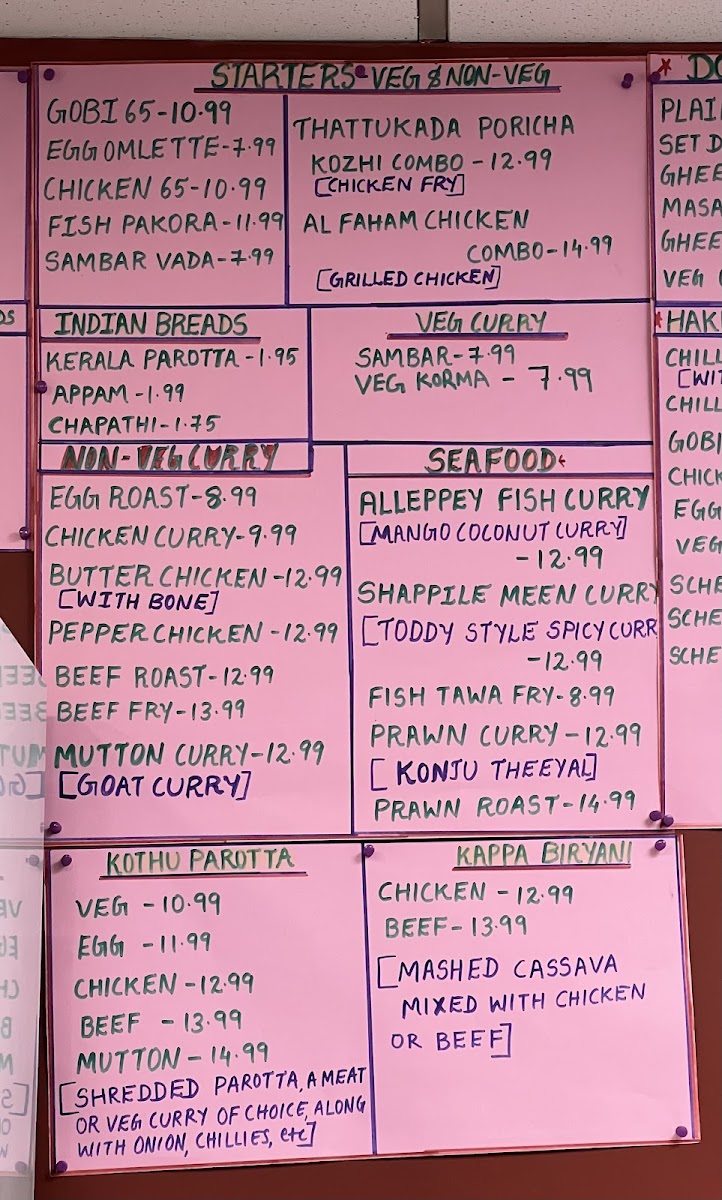 STARTERS-VEG & NON-VEG
GOBI 65-10.99
EGG OMLETTE-7.99
CHICKEN 65-10.99
FISH PAKORA-11.99
SAMBAR VADA-7.99
THATTUKADA PORICHA
KOZHI COMBO-12.99
[CHICKEN FRY]
AL FAHAM CHICKEN
COMBO-14.99
[GRILLED CHICKEN]
INDIAN BREADS
KERALA PAROTTA-1.95
APPAM-1.99
CHAPATHI-1.75
VEG CURRY
SAMBAR-7.99
VEG KORMA - 7.99
NON-VEG CURRY
EGG ROAST-8.99
CHICKEN CURRY-9.99
BUTTER CHICKEN-12.99
[WITH BONE]
PEPPER CHICKEN-12.99
BEEF ROAST-12.99
BEEF FRY-13.99
MUTTON CURRY-12.99
[GOAT CURRY]
SEAFOOD
ALLEPPEY FISH CURRY
[MANGO COCONUT CURRY]
-12.99
SHAPPILE MEEN CURRY
[TODDY STYLE SPICY CURR
-12.99
FISH TAWA FRY-8.99
PRAWN CURRY-12.99
[KONJU THEEYAL]
PRAWN ROAST-14.99
KOTHU PAROTTA
VEG -10.99
EGG -11.99
CHICKEN-12.99
BEEF -13.99
MUTTON-14.99
[SHREDDED PAROTTA, A MEAT
OR VEG CURRY OF CHOICE, ALONG
WITH ONION, CHILLIES, etc]
KAPPA BIRYANI
CHICKEN -12.99
BEEF-13.99
[MASHED CASSAVA
MIXED WITH CHICKEN
OR BEEF]
DO
PLAI
SET D
GHEE
MASA
GHEE
VEG
HAK
CHILL
[WIT
CHILL
GOBI
CHICK
EGG
VEG
SCHE
SCHE
SCHE